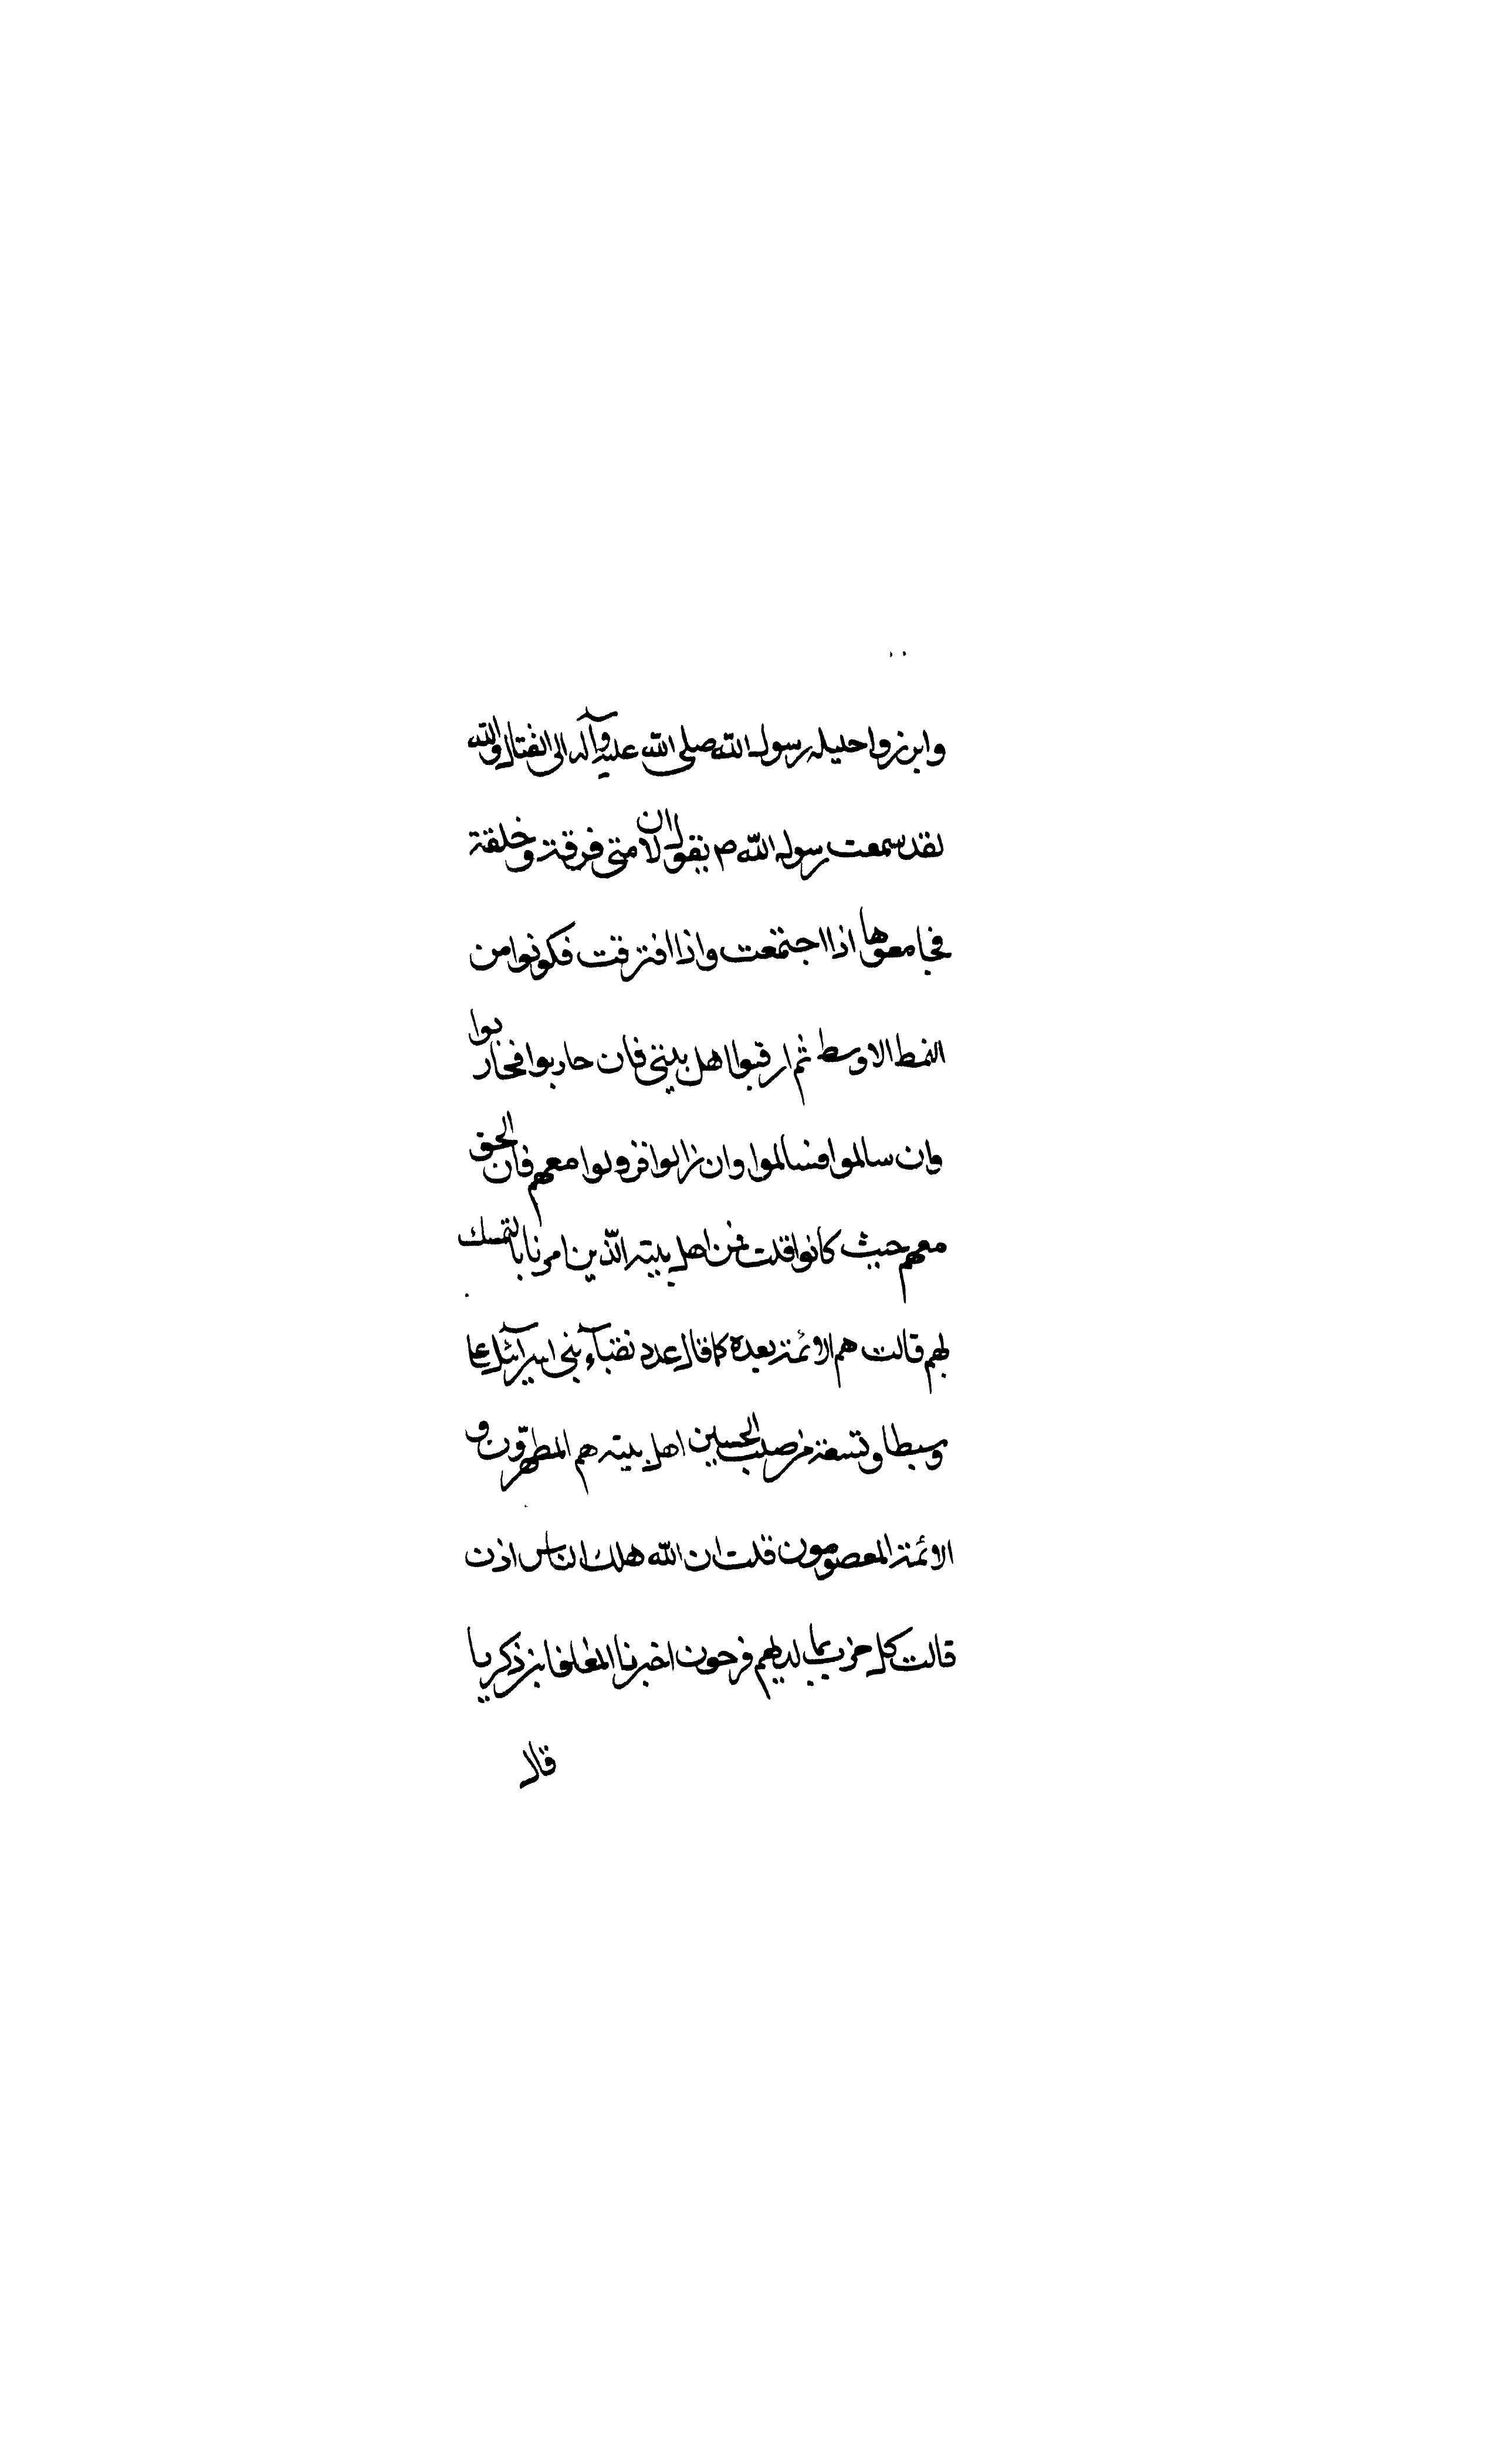 وابرزوا حليله رسول الله صلى الله عليه وآله الى القتال والله
لقد سمعت رسول الله ص يقول ان لامتى فرقة وخلقة
فجامعوها اذا اجتمعت واذا افترقت فكونوا من
النمط الاوسط ثم ارقبوا اهل بيتى فان حاربوا فحاربوا
وان سالموا فسالموا وان زالوا فزولوا معهم فان الحق
معهم حيث كانوا قلت فمن اهل بيته الذين امرنا بالتمسك
بهم قالت هم الائمة بعده كما قال عدد نقباء بنى اسرآئيل على
وسبطا وتسعة من صلب الحسين اهل بيته هم المطهرون و
الائمة المعصومون قلت ان الله هلك الناس اذن
قالت كل حزب بما لديهم فرحون اخبرنا المعافا بن ذكريا
قال